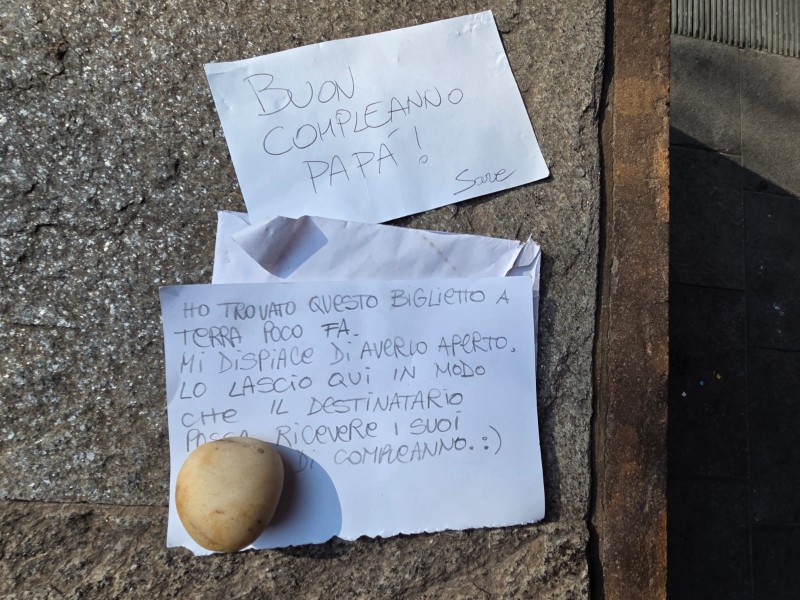 BUON
COMPLEANNO
PAPÁ!
HO TROVATO QUESTO BIGLIETTO A
TERRA POCO FA.
MI DISPIACE DI AVERLO APERTO.
LO LASCIO QUI IN MODO
CHE IL DESTINATARIO
RICEVERE I SUOI
DI COMPLEANNO. :)